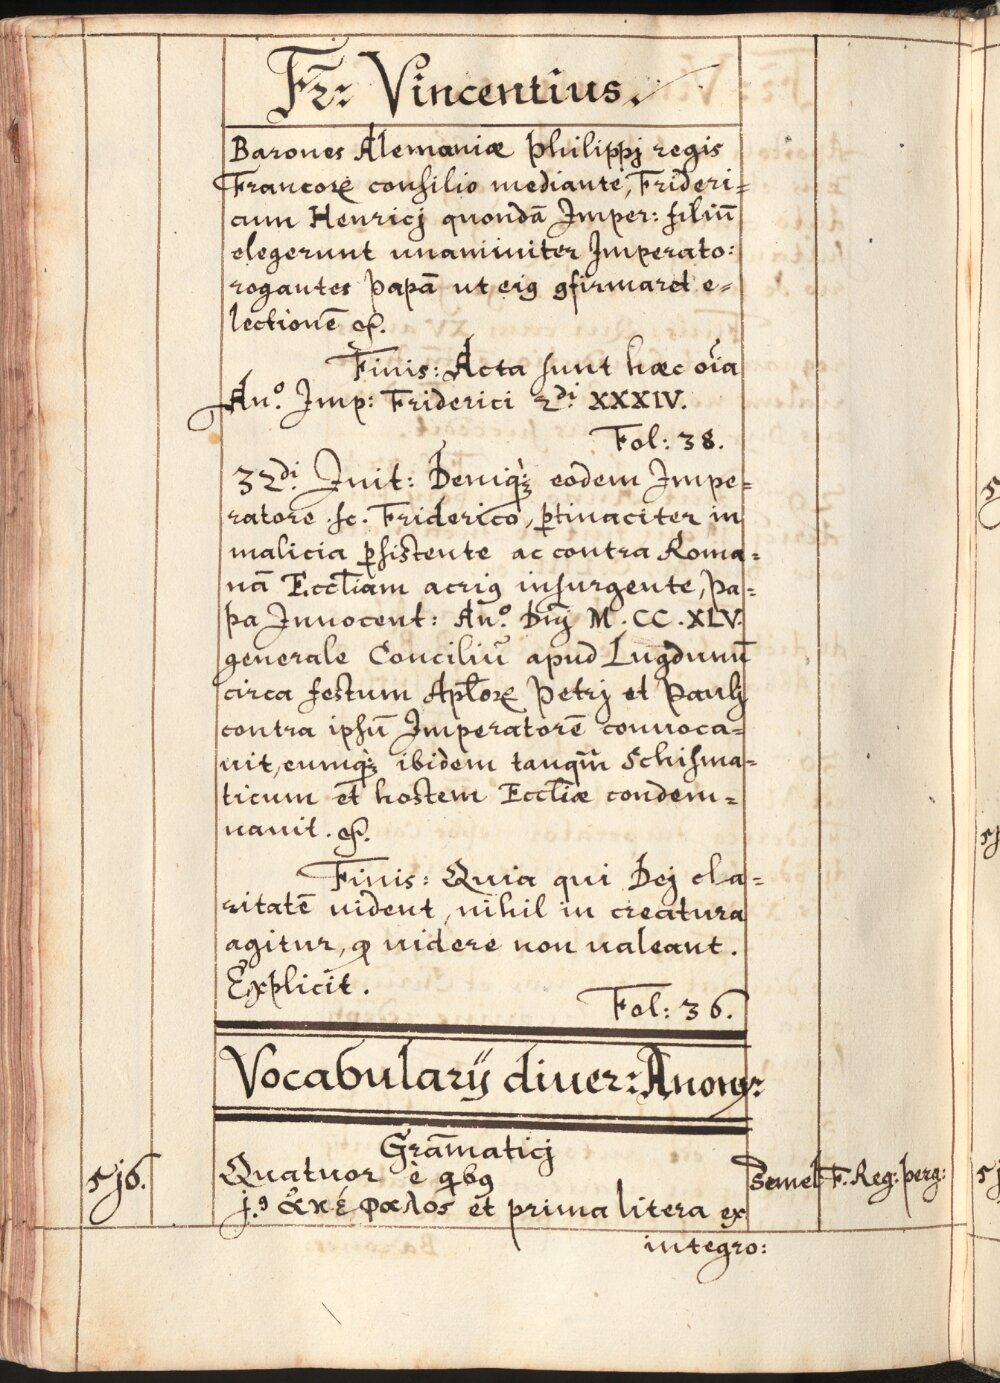 Fr: Vincentius.
Barones Alemaniæ Philippj regis
Francorꝝ consilio mediante, Frideri=
cum Henricj quondā Imper: filiū
elegerunt unanimiter Imperato:
rogantes papā ut eiꝰ ꝯfirmaret e=
lectionē &.
Finis: Acta sunt hæc oīa
An̊. Imp: Friderici 2di XXXIV.
Fol: 38.
32di Init: Deniqꝫ eodem Impe=
ratore .sc. Friderico, ꝑtinaciter in
malicia ꝑsistente ac contra Roma=
nā Eccl̄iam acriꝰ insurgente, pa=
pa Innocent: An̊. Dn̄j M.CC.XLV.
generale Conciliū apud Lugdunū
circa festum Apl̄orꝝ Petrj et Paulj
contra ipsū Imperatorē conuoca=
uit, eumqꝫ ibidem tanqūm Schisma=
ticum et hostem Eccl̄iæ condem=
nauit. &.
Finis: Quia qui Dej cla=
ritatē uident, nihil in creatura
agitur, ꝙ uidere non ualeant.
Explicit.
Fol: 36.
Vocabularÿ diuer: Anony:
Gram̄aticj
5j6.
Quatuor è qbꝰ
Semel F. Reg: perg:
j.ꝰ ἀκέφαλος et prima litera ex
integro: